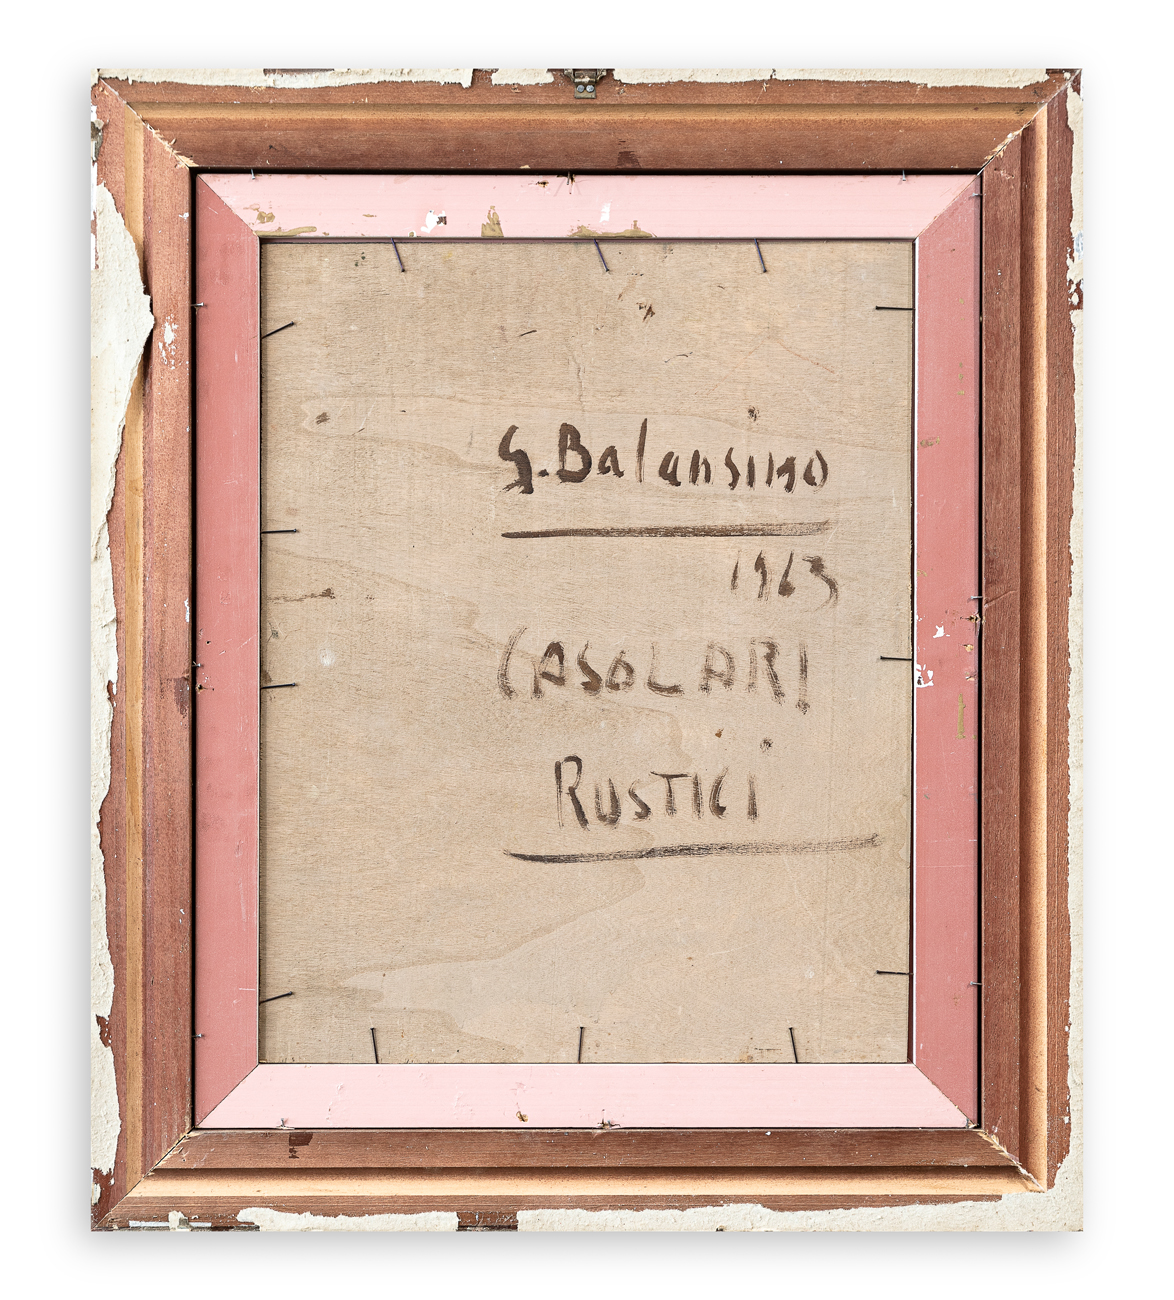 G. Balansino
1963
CASOLARI
RUSTICI